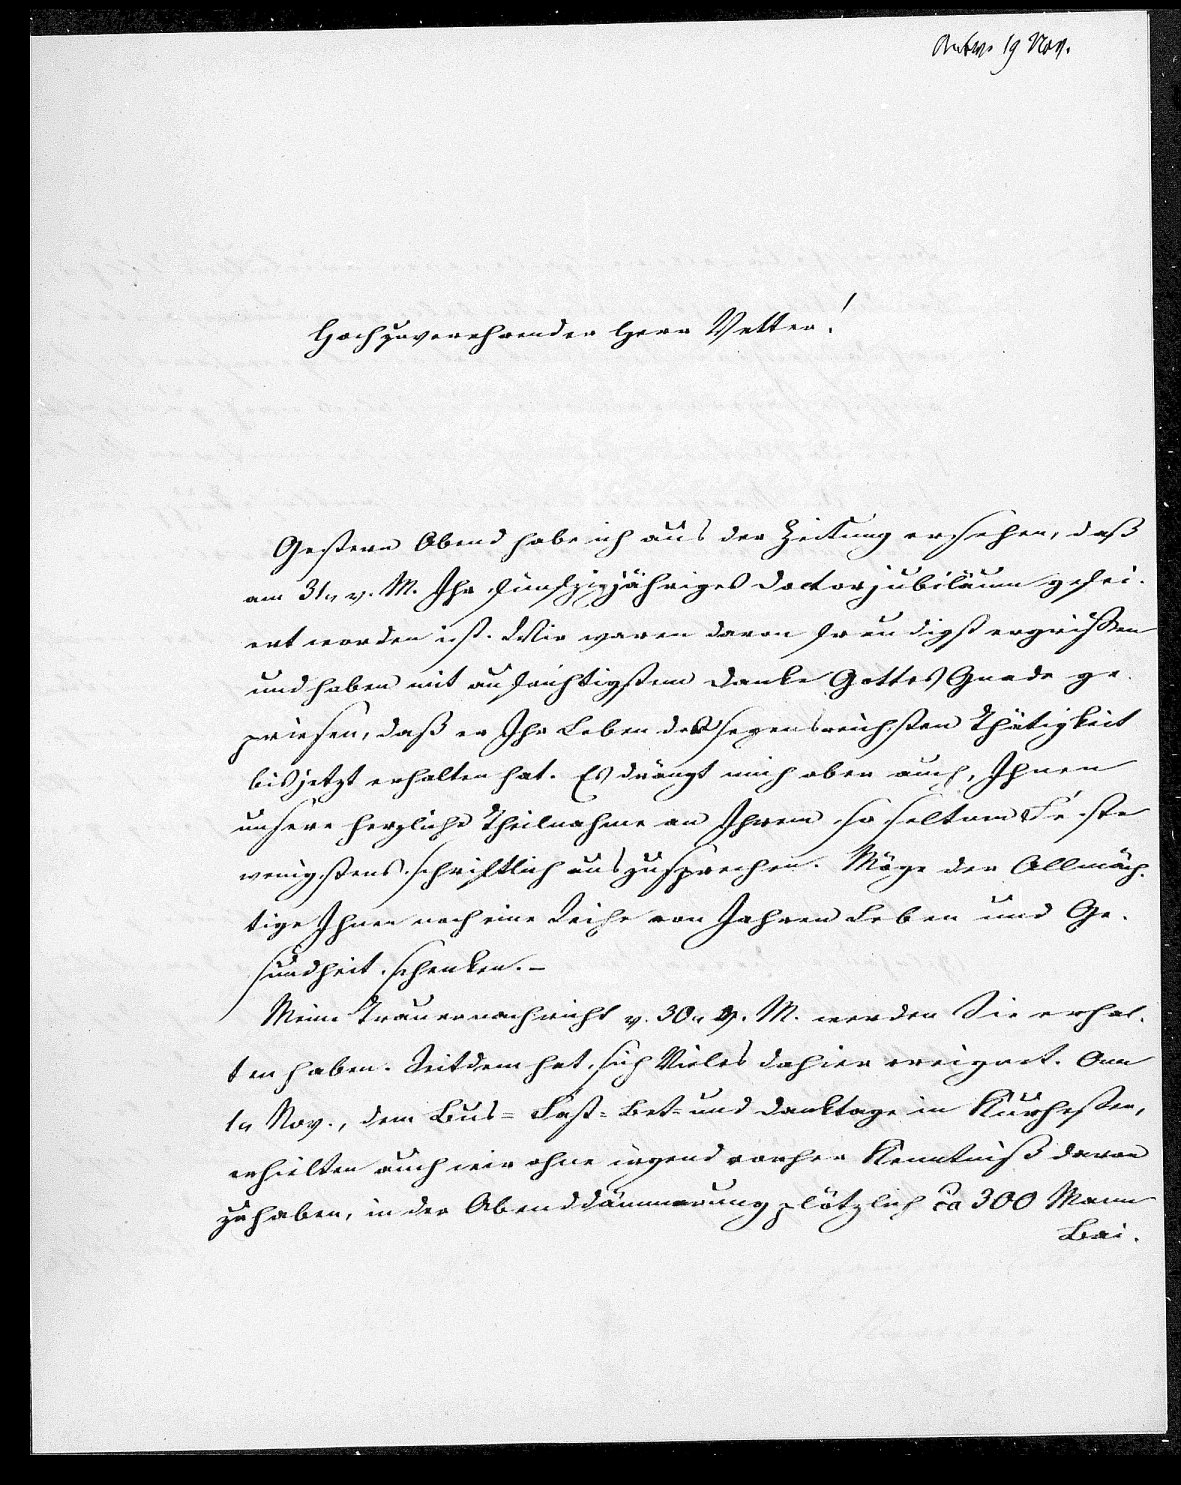 Antw. 19 Nov.
Hochzuverehrender Herr Vetter!
Gestern Abend habe ich aus der Zeitung ersehen, daß
am 31n v. M. Ihr fünfzigjähriges Doctorjubiläum gefei-
ert worden ist. Wir waren davon freudigst ergriffen
und haben mit aufrichtigstem Danke Gottes Gnade ge-
priesen, daß er Ihr Leben der segensreichsten Thätigkeit
bisjetzt erhalten hat. Es drängt mich aber auch, Ihnen
unsere herzliche Theilnahme an Ihrem so seltenen Feste
wenigstens schriftlich auszusprechen. Möge der Allmäch-
tige Ihnen noch eine Reihe von Jahren Leben und Ge-
sundheit schenken. –
Meine Trauernachricht v. 30n v. M. werden Sie erhal-
ten haben. Seitdem hat sich Vieles dahier ereignet. Am
1n Nov., dem Bus- Fast- Bet- und Danktage in Kurhessen,
erhielten auch wir ohne irgend vorher Kenntniß davon
zu haben, in der Abenddämmerung plötzlich ca 300 Mann
Bai-